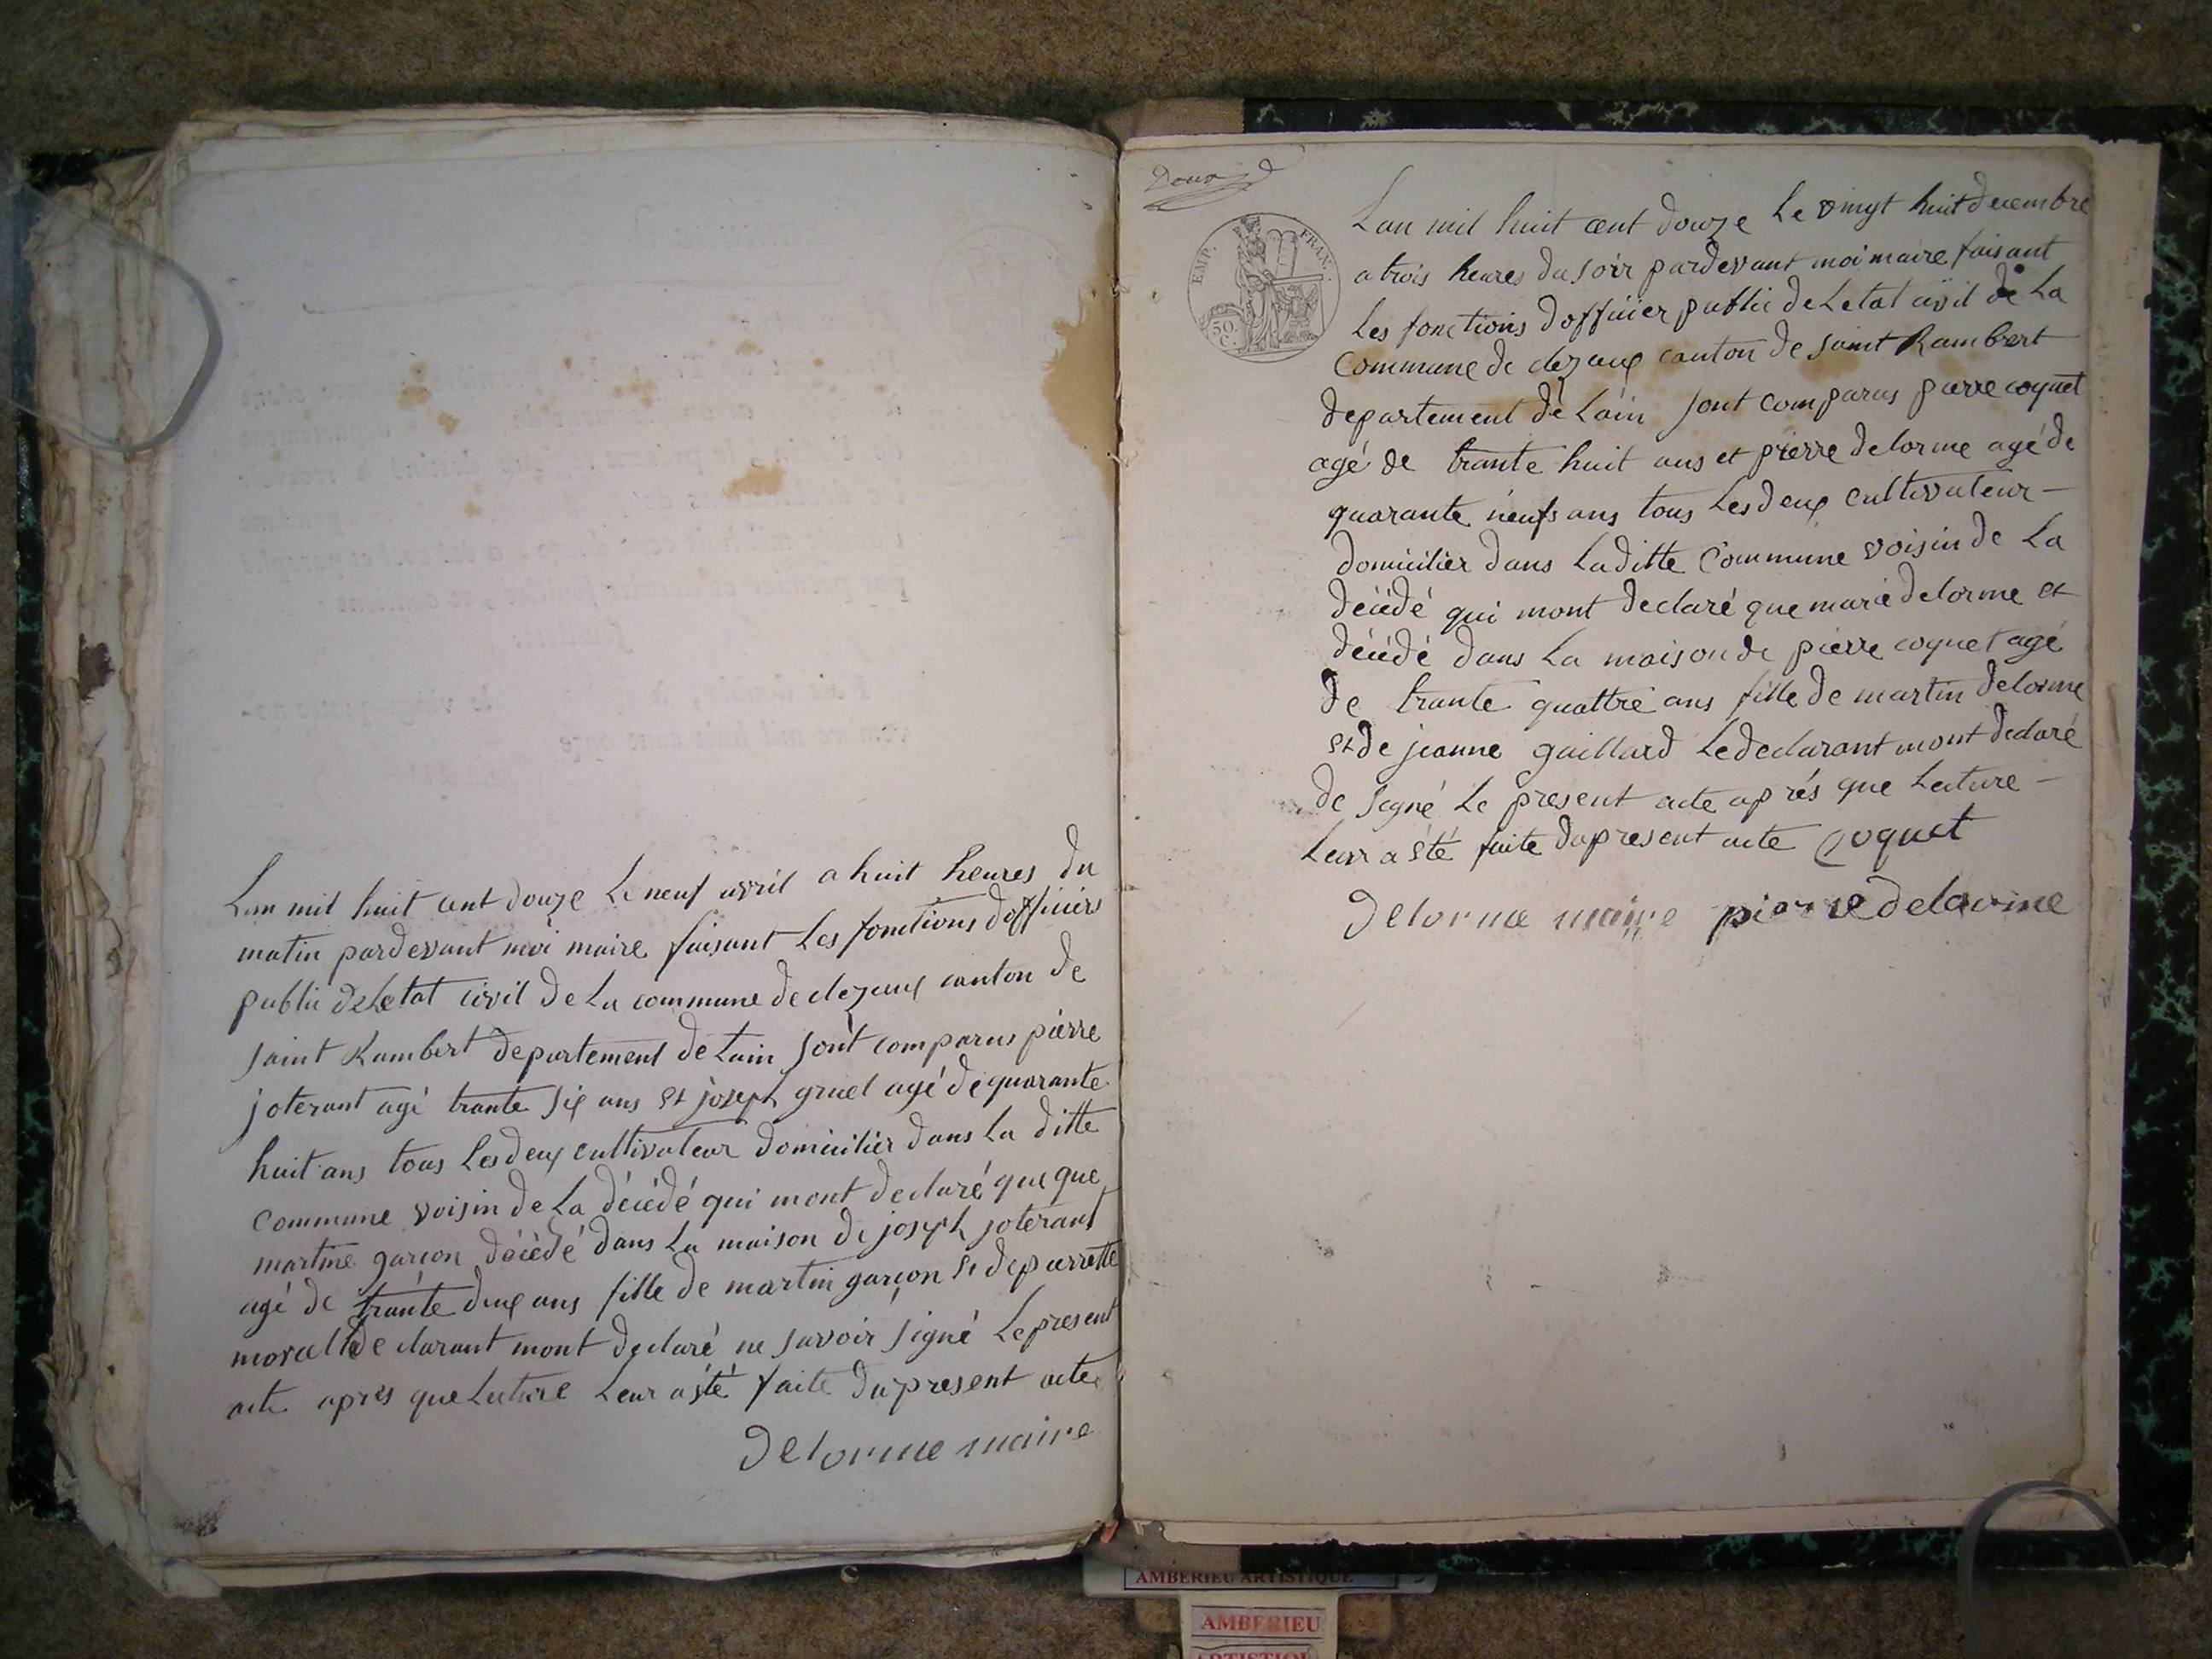 Lan mil huit cent douze Le neuf avril a huit heures du
matin pardevant moi maire faisant Les fonctions dofficiers
public de Letat civil de La commune de clezaux canton de
saint Rambert departement de Lain sont comparus pierre
joterant agé trante six ans et joseph gruel agé de quarante
huit ans tous Les deux cultivateur domicilier dans La ditte
commune voisin de La décédé qui mont declaré que que
martine garçon décédé dans La maison de joseph joterant
agé de trante deux ans fille de martin garçon et de pierrette
morel declarant mont declaré ne savoir signé Le present
acte apres que Lecture Leur a été faite du present acte
Delorme maire
Douze
EMP. FRAN.
50.
C.
Lan mil huit cent douze Le vingt huit decembre
a trois heures du soir pardevant moi maire faisant
Les fonctions dofficier public de Letat civil de La
Commune de clezaux canton de saint Rambert
departement de Lain sont comparus pierre coquet
agé de trante huit ans et pierre delorme agé de
quarante neufs ans tous Les deux cultivateur -
domicilier dans La ditte Commune voisin de La
décédé qui mont declaré que marie delorme et
décédé dans La maison de pierre coquet agé
de trante quattre ans fille de martin delorme
et de jeanne gaillard Le declarant mont declaré
de signé Le present acte aprés que Lecture -
Leur a été faite du present acte Coquet
Delorme maire pierre delorme
AMBERIEU ARTISTIQUE
AMBERIEU